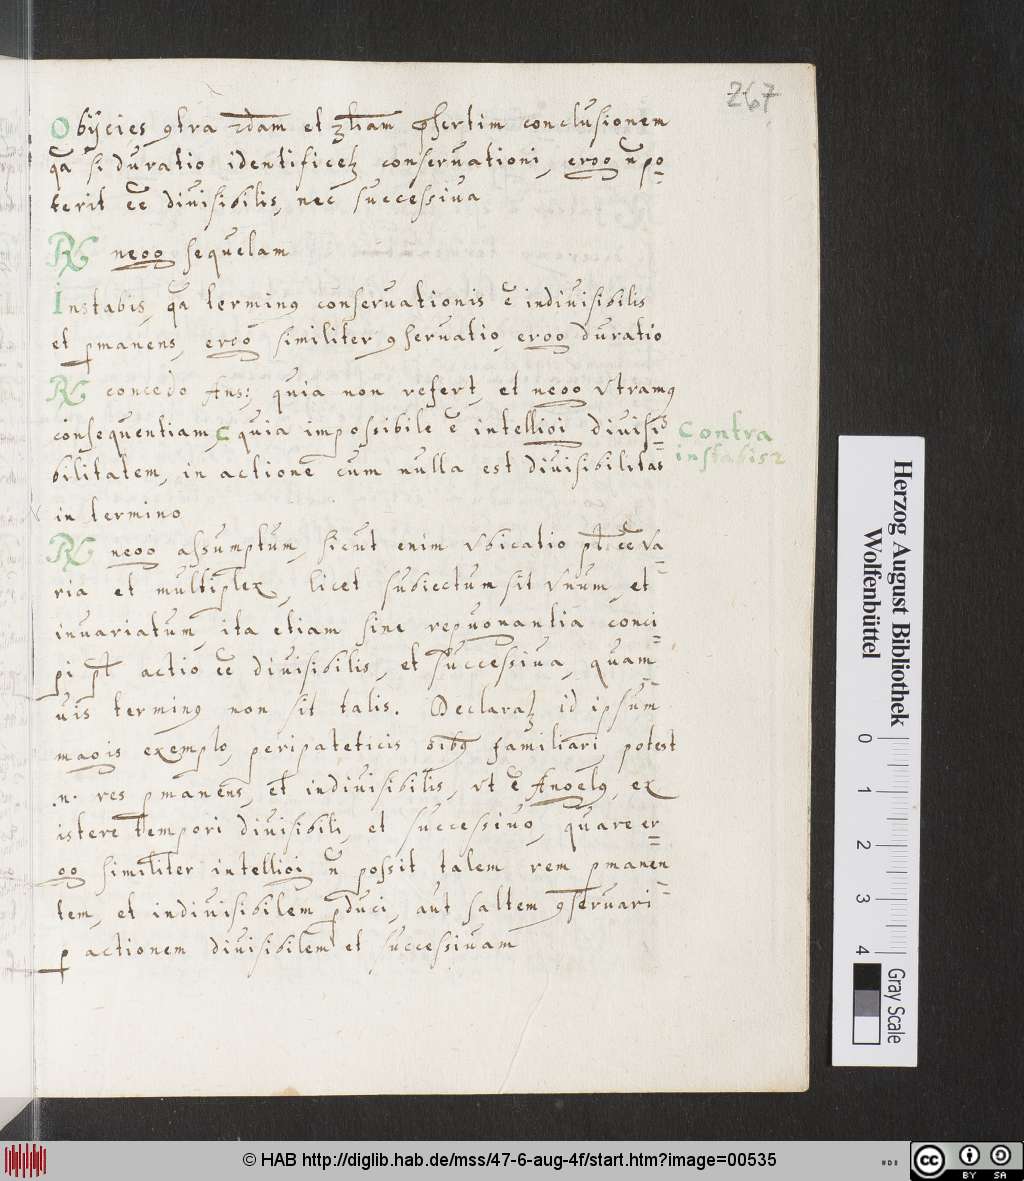 267
Obijcies 9tra 2dam et 3tiam p̄sertim conclusionem
q̄a si duratio identificetʒ conseruationi, ergo n̄ po=
terit ēē diuisibilis, nec successiua
R nego sequelam
Instabis, q̄a terminꝰ conseruationis ē indiuisibilis
et ꝑmanens, ergo similiter 9seruatio, ergo duratio
R concedo Ans: quia non refert, et nego vtramqʒ
consequentiam, C quia impossibile ē intelligi diuisi=
bilitatem, in actione cum nulla est diuisibilitas
in termino
Contra
instabis 2
R nego assumptum, sicut enim vbicatio pt̄ ēē va=
ria et multiplex, licet subiectum sit vnum, et
inuariatum ita etiam sine repugnantia conci=
pi pt̄ actio ēē diuisibilis, et successiua, quam=
uis terminꝰ non sit talis. Declaratʒ id ipsum
magis exemplo, peripateticis oībꝰ familiari, potest
.n. res ꝑmanens, et indiuisibilis, vt ē Angelꝰ, ex
istere tempori diuisibili, et successiuo, quare er=
go similiter intelligi n̄ possit talem rem ꝑmanen=
tem, et indiuisibilem ꝓduci, aut saltem 9seruari
ꝑ actionem diuisibilem et successiuam
Herzog August Bibliothek
Wolfenbüttel
0 1 2 3 4
Gray Scale
© HAB http://diglib.hab.de/mss/47-6-aug-4f/start.htm?image=00535
cc BY SA